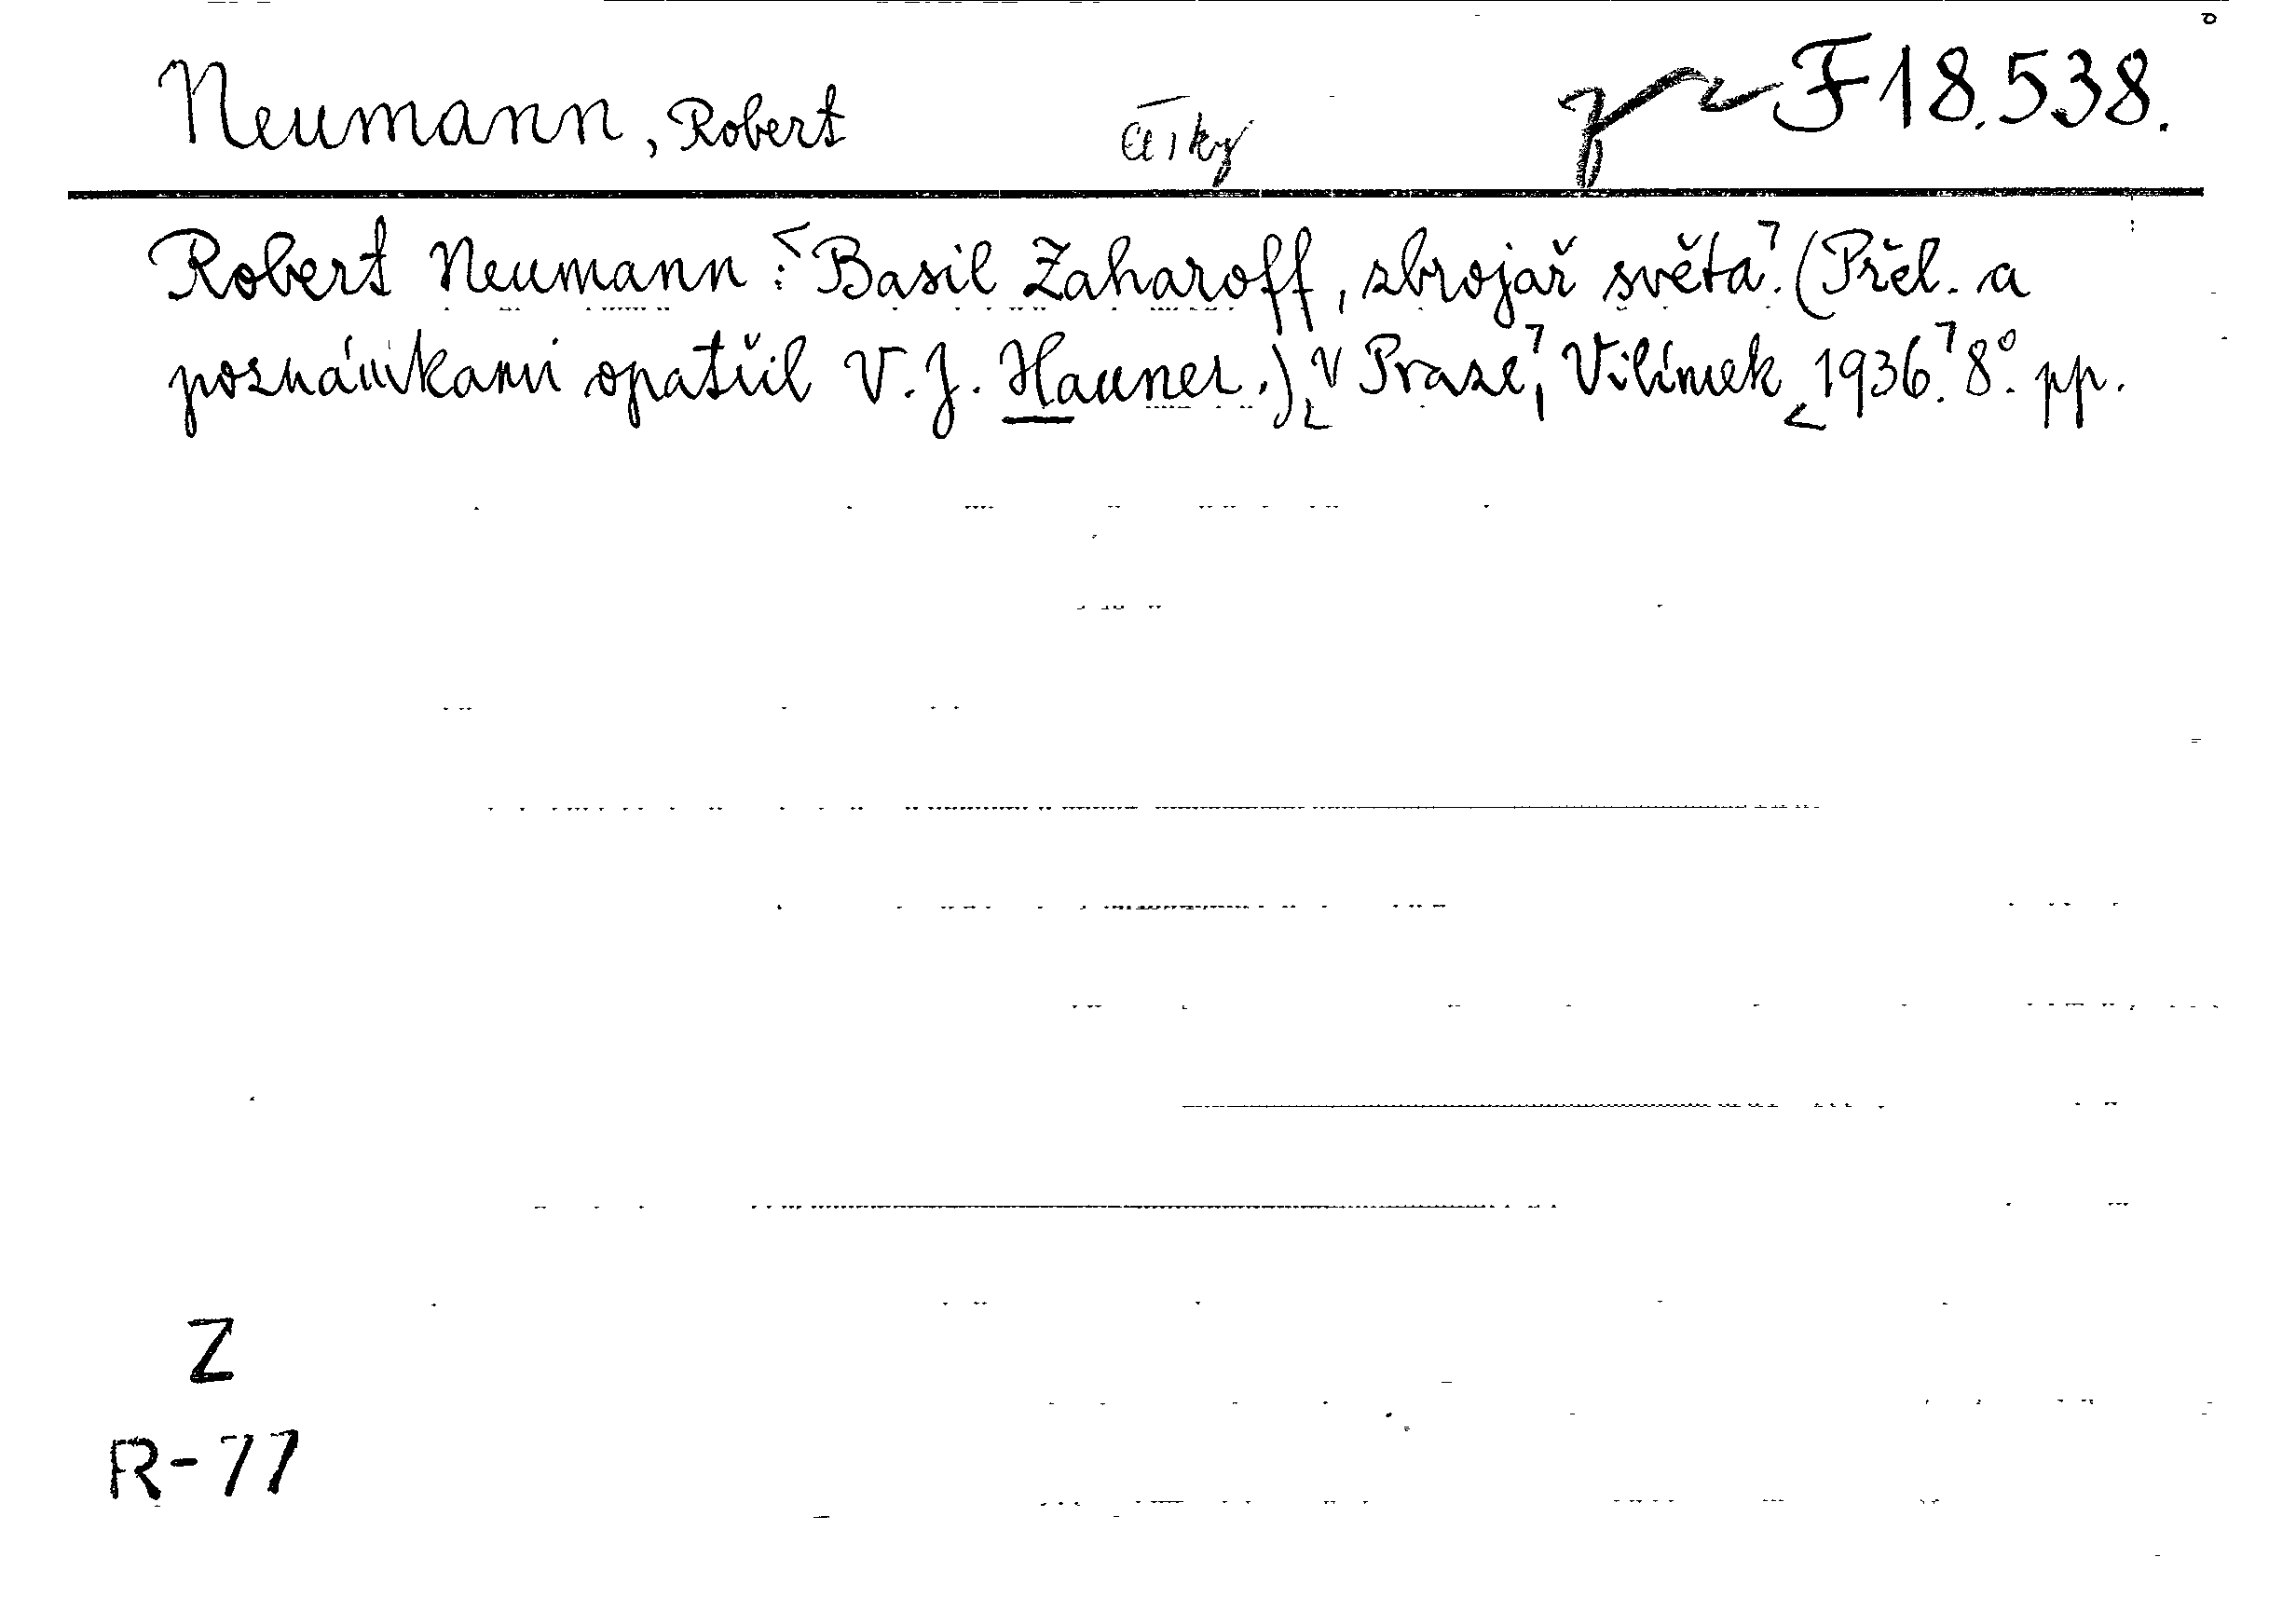 Neumann, Robert česky F 18.538.
Robert Neumann: Basil Zaharoff, zbrojař světa. (Přel. a
poznámkami opatřil V. J. Hauner.) V Praze, Vilímek 1936. 8°. pp.
Z
R-77